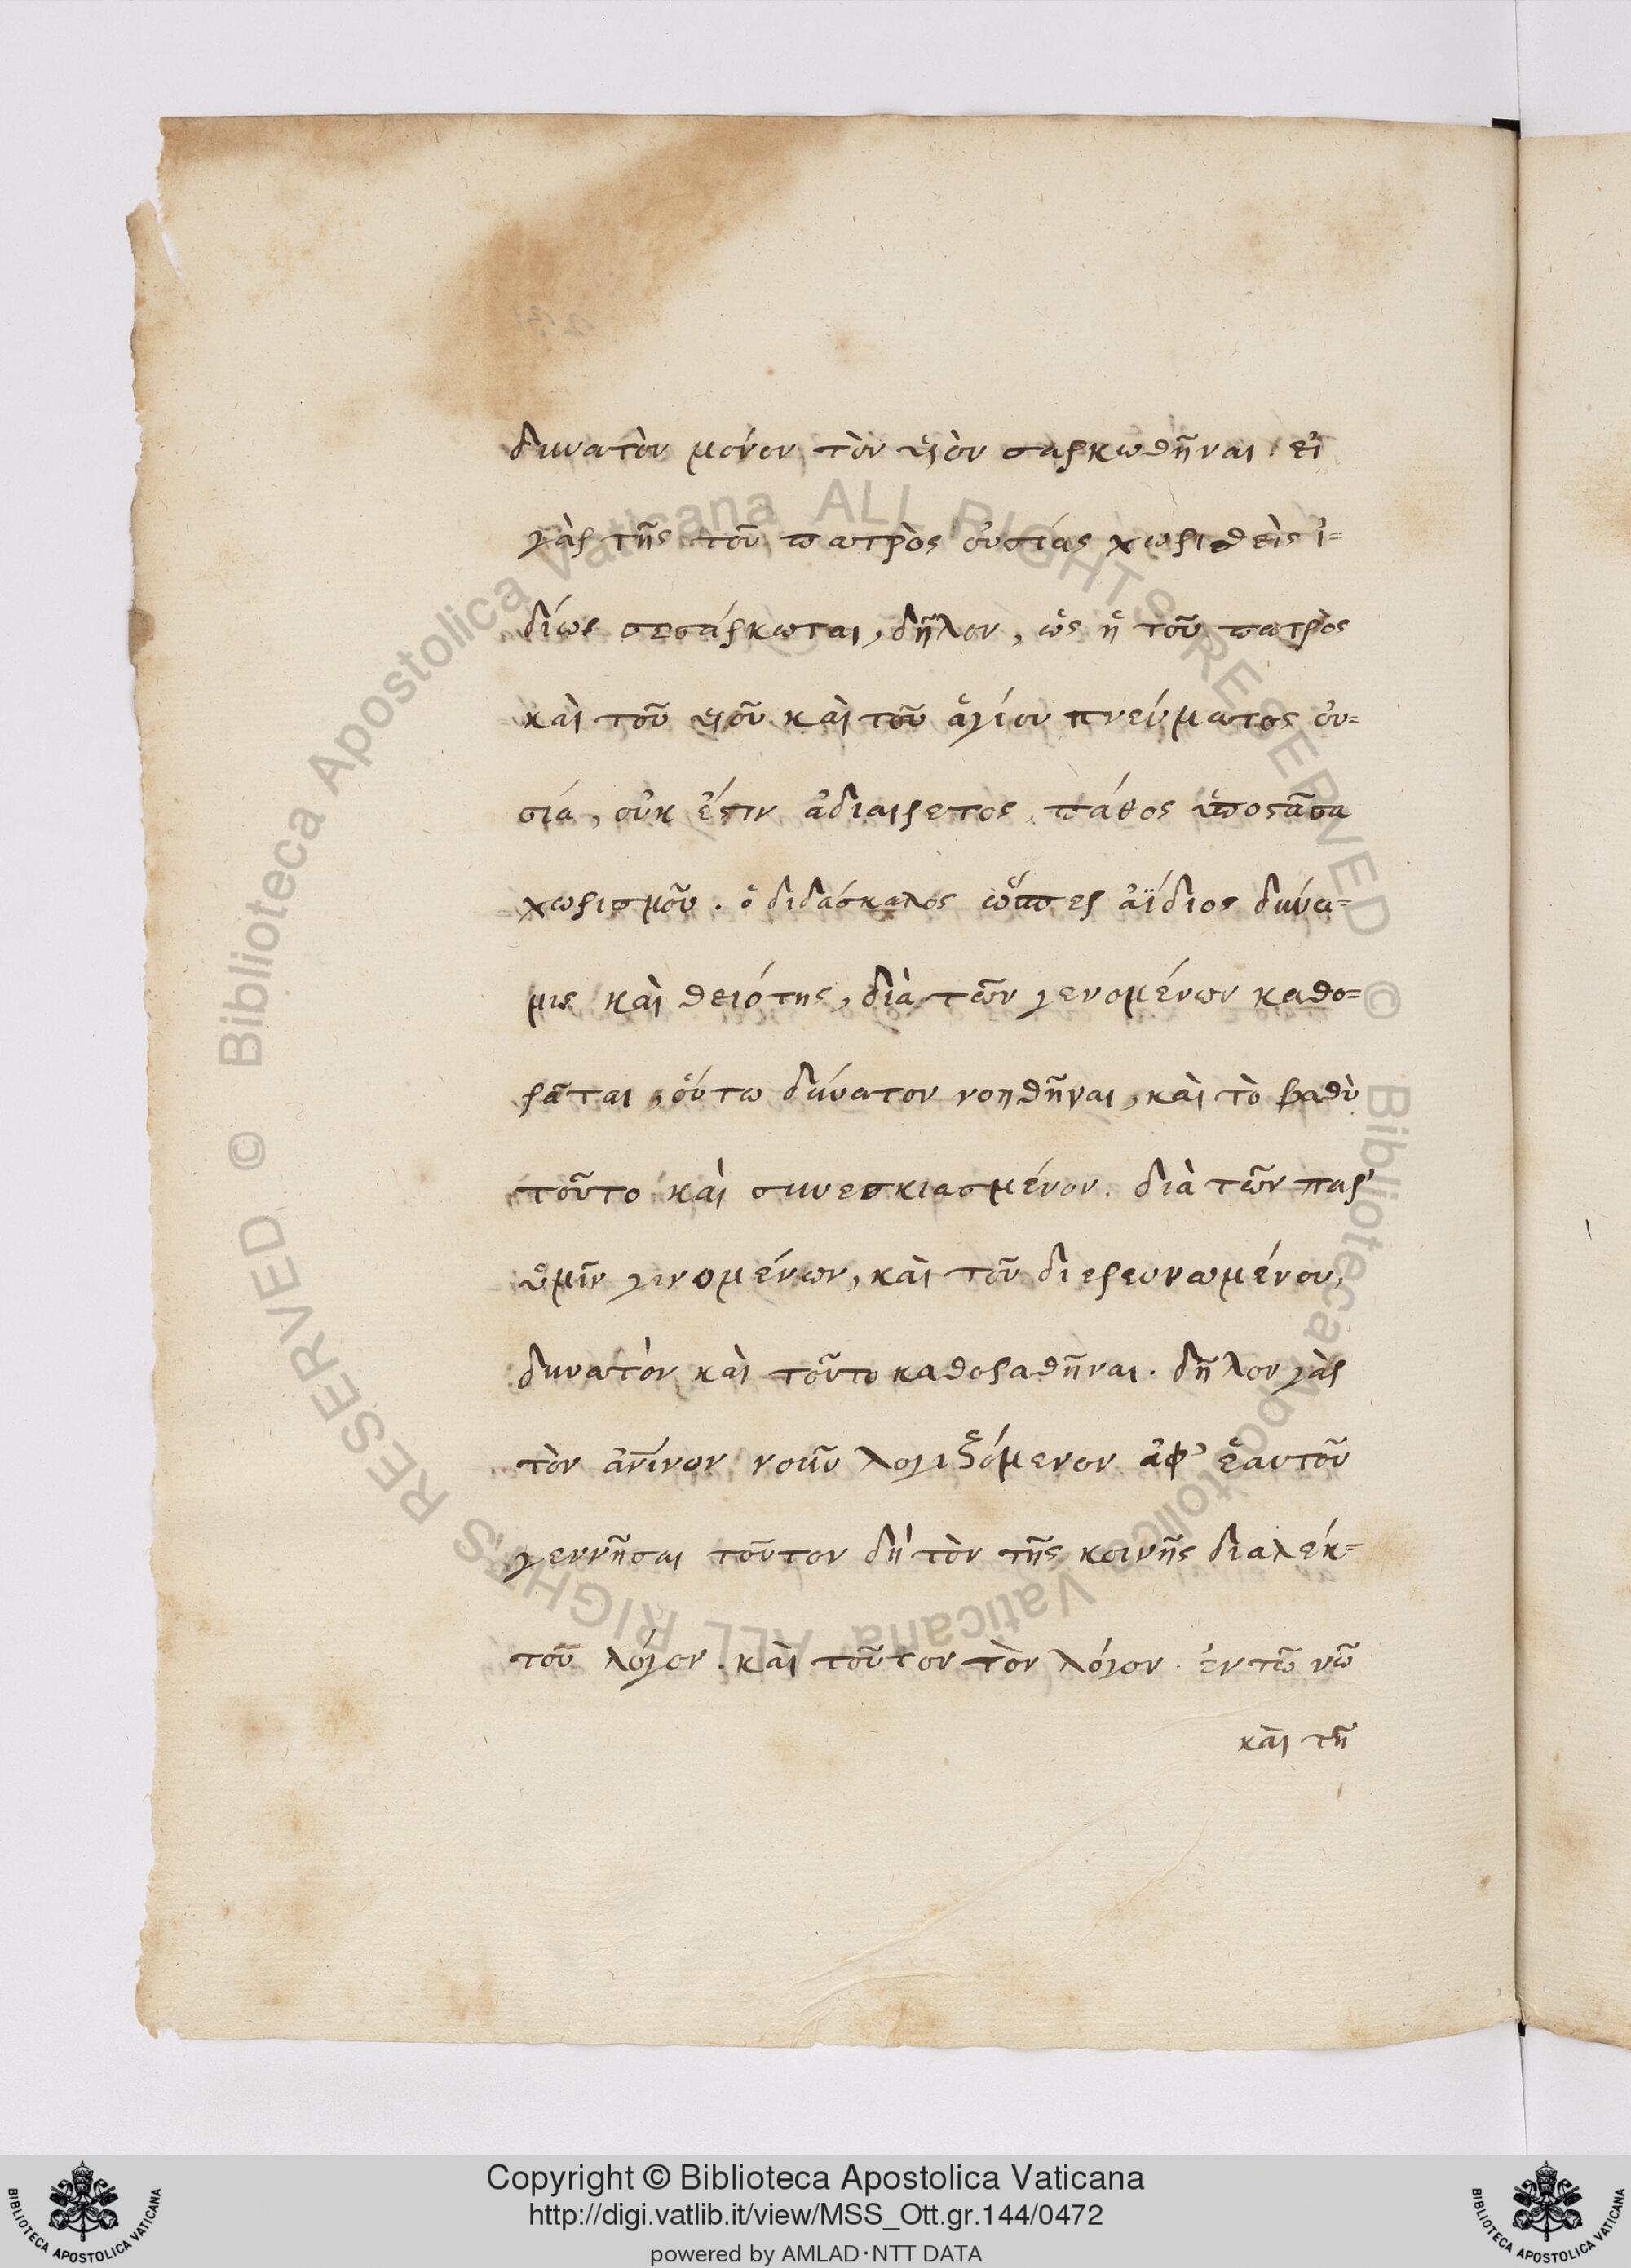 δυνατὸν μόνον τὸν υἱὸν σαρκωθῆναι. εἰ
γὰρ τῆς τοῦ πατρὸς οὐσίας χωρισθεὶς ἰ=
δίως σεσάρκωται, δῆλον, ὡς ἡ τοῦ πατρὸς
καὶ τοῦ υἱοῦ καὶ τοῦ ἁγίου πνεύματος οὐ=
σία, οὐκ ἔστιν ἀδιαίρετος, πάθος ὑποστᾶσα
χωρισμοῦ. ὁ διδάσκαλος ὥσπερ ἀΐδιος δύνα=
μις καὶ θειότης, διὰ τῶν γενομένων καθο=
ρᾶται, οὕτω δύνατον νοηθῆναι, καὶ τὸ βαθὺ
τοῦτο καὶ συνεσκιασμένον. διὰ τῶν παρ'
ὑμῖν γινομένων, καὶ τοῦ διερευνωμένου,
δυνατὸν καὶ τοῦτο καθοραθῆναι. δῆλον γὰρ
τὸν ἀνίνων νοῦν λογιζόμενον ἀφ' ἑαυτοῦ
γεννῆσαι τοῦτον δὴ τὸν τῆς κοινῆς διαλέκ=
του λόγον. καὶ τοῦτον τὸν λόγον ἐν τῷ νῷ
καὶ τῇ
Biblioteca Apostolica Vaticana ALL RIGHTS RESERVED ©
Biblioteca Apostolica Vaticana ALL RIGHTS RESERVED ©
Copyright © Biblioteca Apostolica Vaticana
http://digi.vatlib.it/view/MSS_Ott.gr.144/0472
powered by AMLAD·NTT DATA
BIBLIOTECA APOSTOLICA VATICANA
BIBLIOTECA APOSTOLICA VATICANA